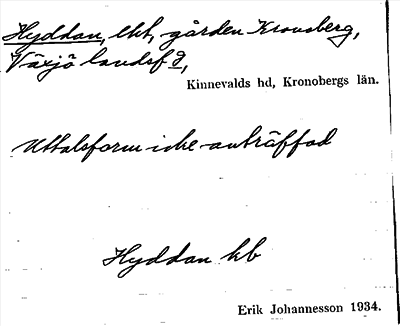 Hyddan, lht, gården Kronoberg,
Växjö landsf g,
Kinnevalds hd, Kronobergs län.
Uttalsform icke anträffad
Hyddan kb
Erik Johannesson 1934.